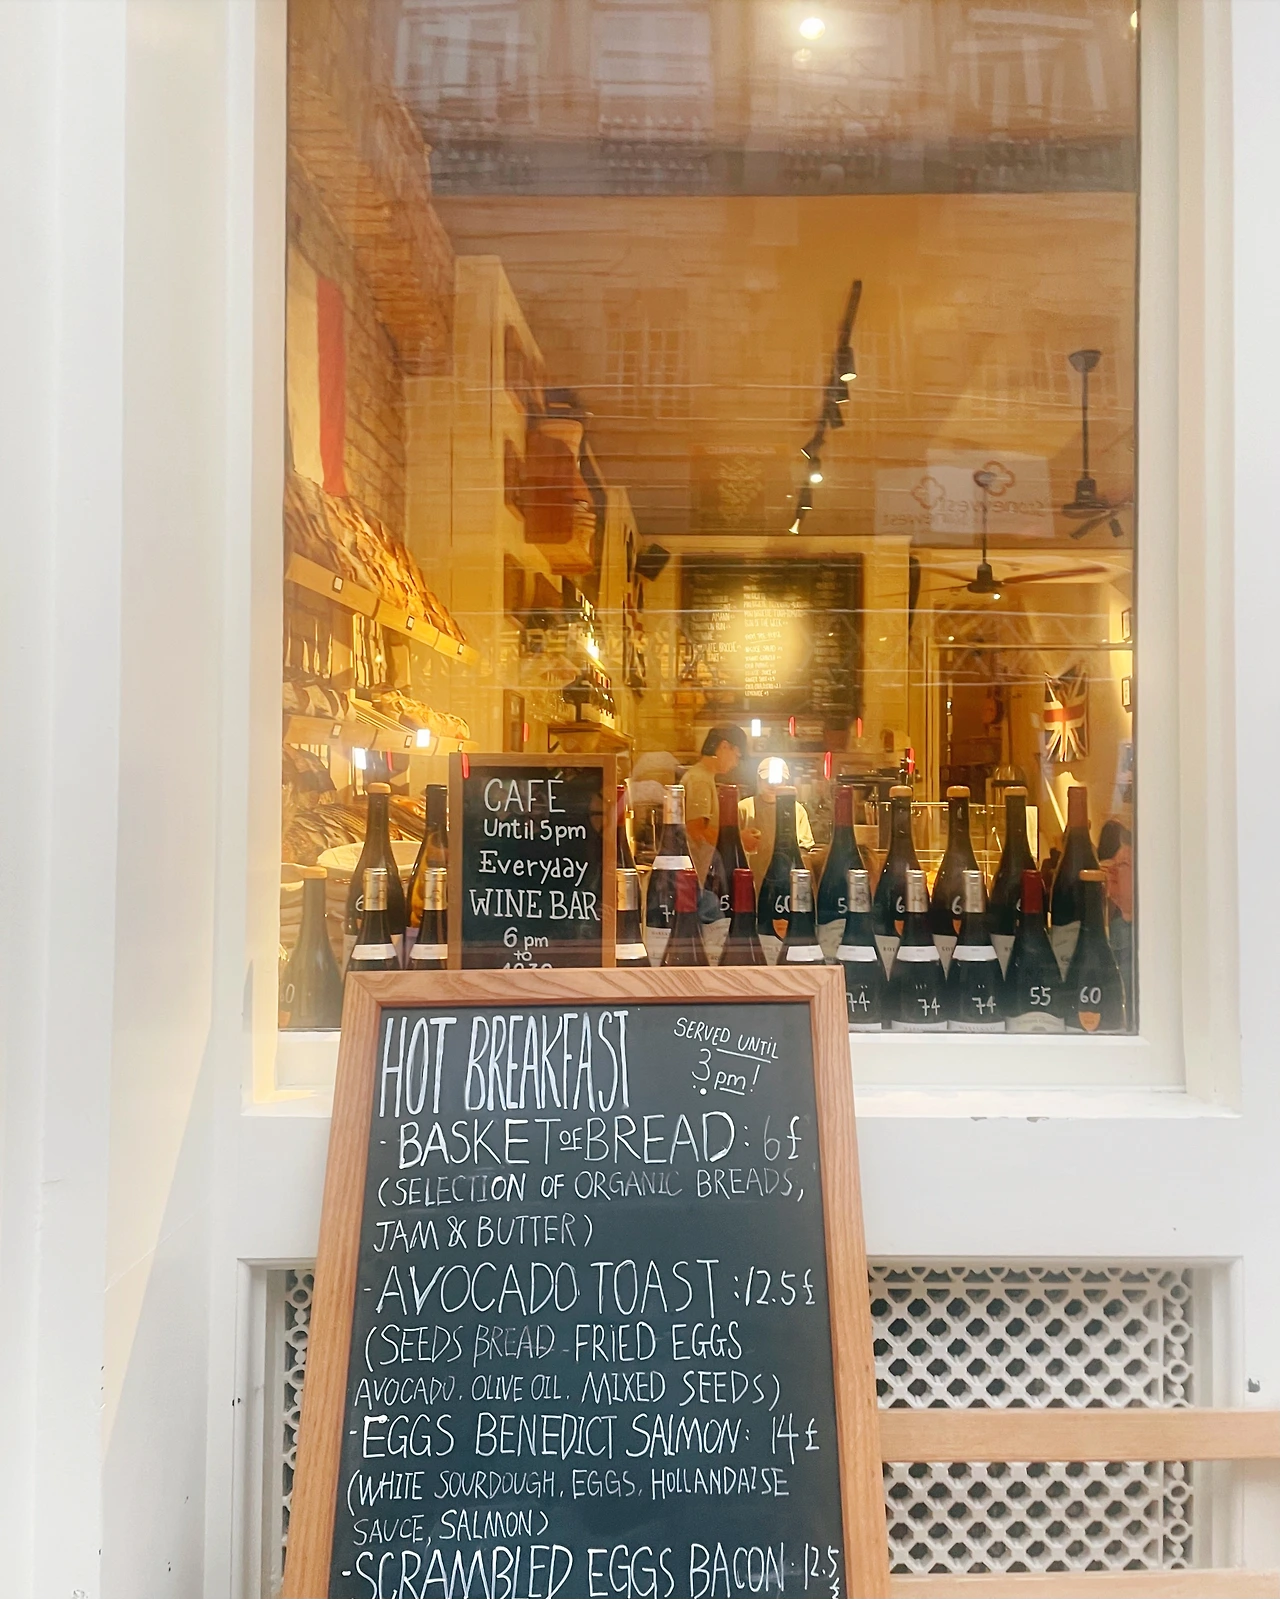 CAFÉ
Until 5pm
Everyday
WINE BAR
6 pm
to
74
74
74
55
60
HOT BREAKFAST
SERVED UNTIL
3pm!
- BASKET OF BREAD: 6£
(SELECTION OF ORGANIC BREADS,
JAM & BUTTER)
- AVOCADO TOAST : 12.5£
(SEEDS BREAD - FRIED EGGS
AVOCADO, OLIVE OIL, MIXED SEEDS)
- EGGS BENEDICT SALMON: 14£
(WHITE SOURDOUGH, EGGS, HOLLANDAISE
SAUCE, SALMON)
- SCRAMBLED EGGS BACON: 12.5